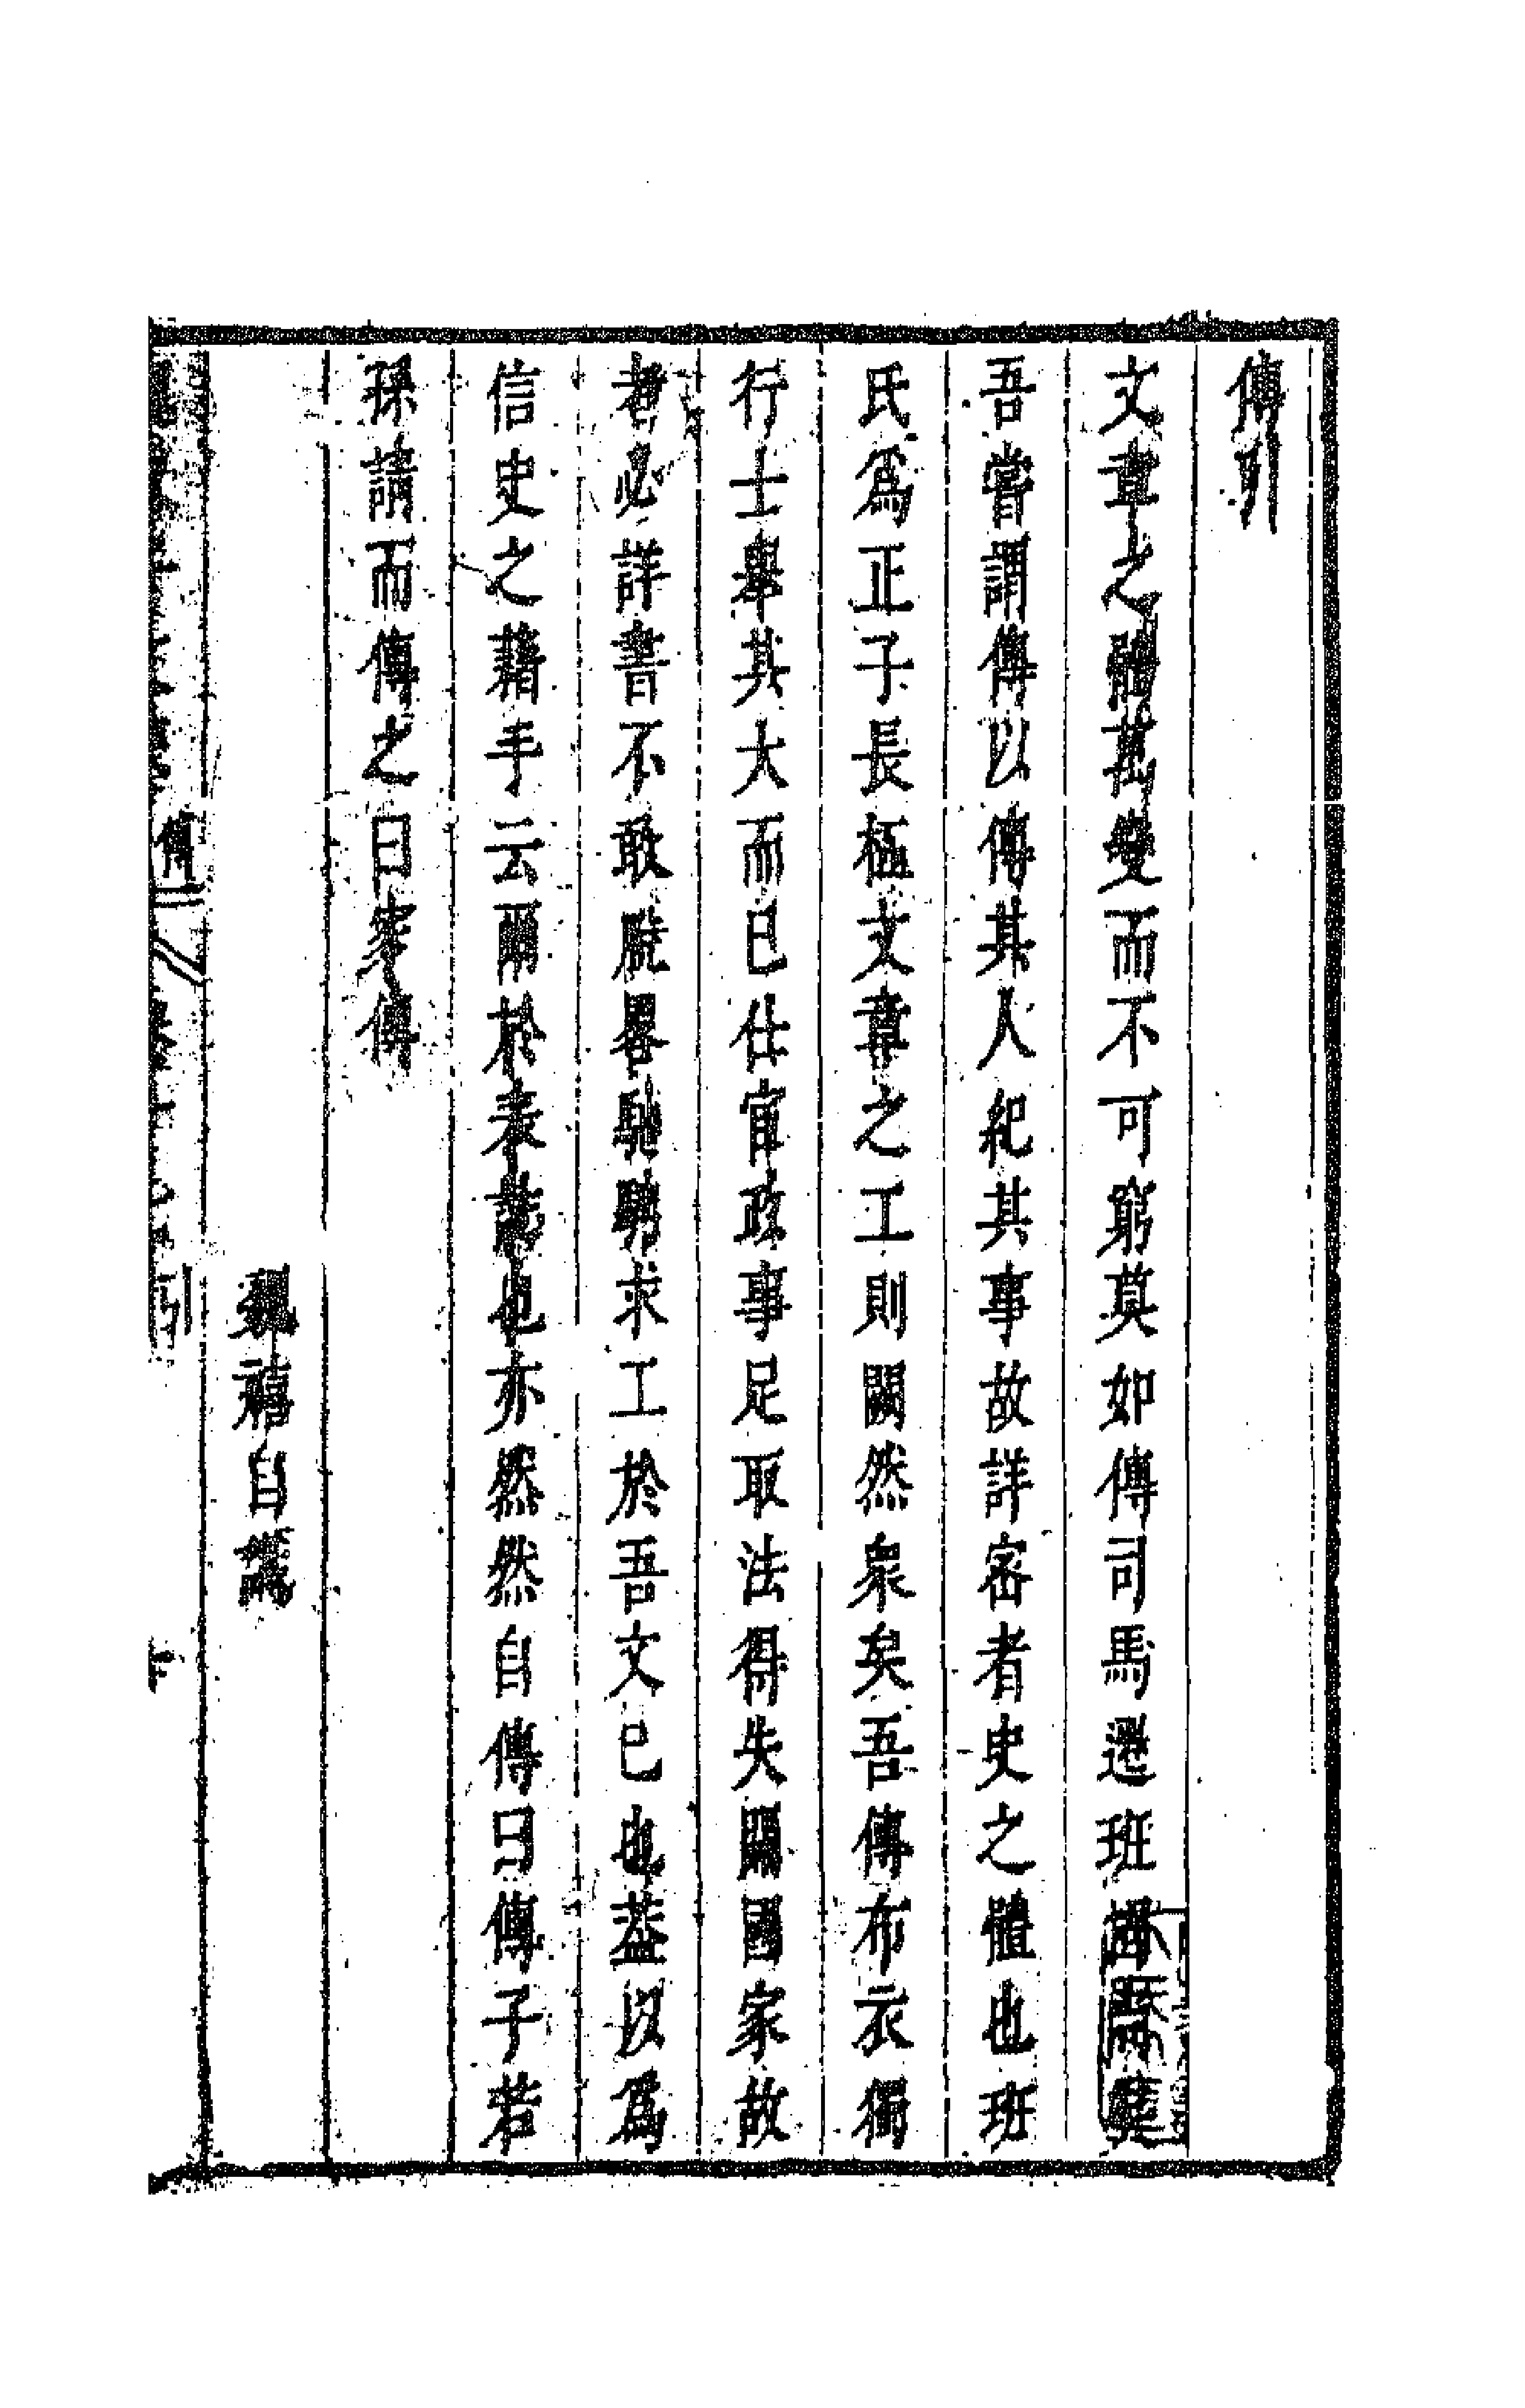 傳引
文章之體萬變而不可窮莫如傳司馬遷班固尚矣
吾嘗謂傳以傳其人紀其事故詳密者史之體也班
氏爲正子長極文章之工則闕然衆矣吾傳布衣獨
行士舉其大而已仕宦政事足取法得失關國家故
者必詳書不敢厭畧馳騁求工於吾文已也葢以爲
信史之藉手云爾於表誌也亦然然自傳曰傳子若
孫請而傳之曰家傳
魏禧自議
傳
引